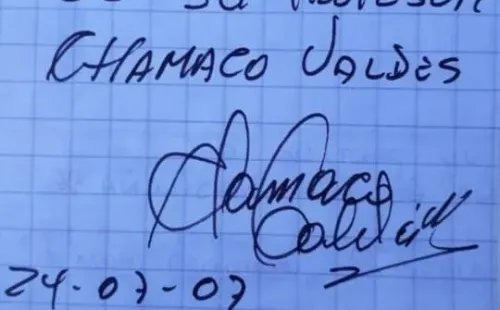 su profesor
CHAMACO VALDES
Chamaco
Valdés
24-07-07